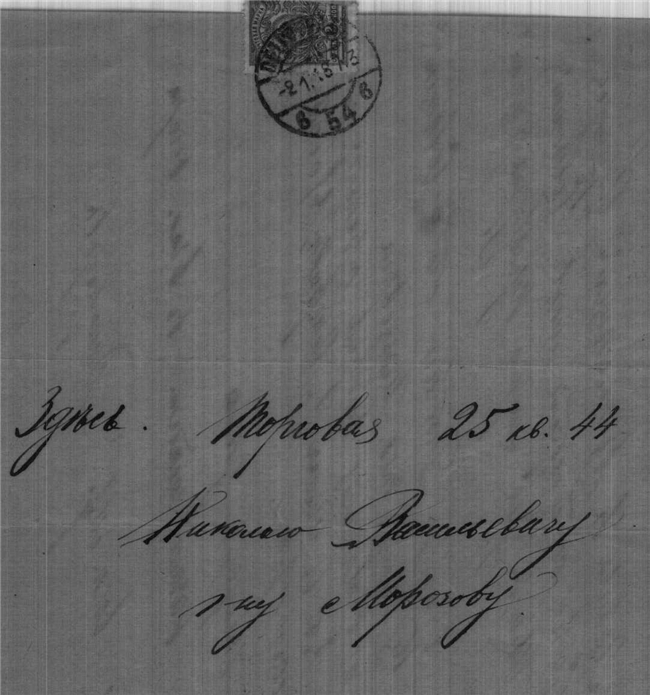 -2.1.18
6 54 6
Здѣсь. Торговая 25 кв. 44
Николаю Васильевичу
г-ну Морозову.